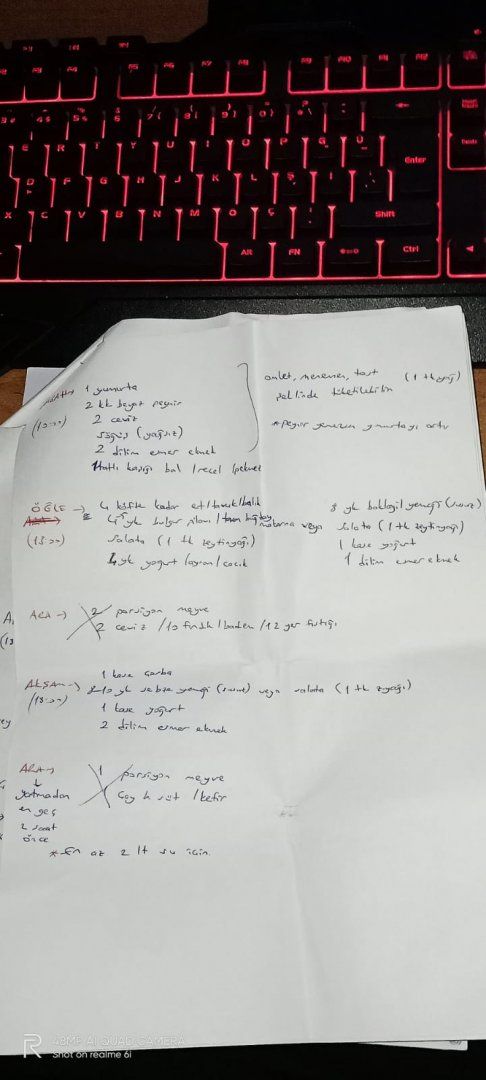 1 yumurta
2 kk beyaz peynir
2 ceviz
söğüş (yağsız)
2 dilim esmer ekmek
tatlı kaşığı bal / reçel / pekmez
omlet, menemen, tost (1 tk yağ)
şeklinde tüketilebilir
* peynir yerine yumurtayı
ÖĞLE →
(13:00)
4 köfte kadar et / tavuk / balık
4 yk bulgur pilavı / tam buğday makarna veya
salata (1 tk zeytinyağı)
4 yk yoğurt / ayran / cacık
8 yk baklagil yemeği
salata (1 tk zeytinyağı)
1 kase yoğurt
1 dilim esmer ekmek
ARA →
2 porsiyon meyve
2 ceviz / 10 fındık / badem / 12 yer fıstığı
AKŞAM →
(18:00)
1 kase çorba
8-10 yk sebze yemeği veya salata (1 tk zyağı)
1 kase yoğurt
2 dilim esmer ekmek
ARA →
yatmadan
en geç
2 saat
önce
1 porsiyon meyve
çay b süt / kefir
* En az 2 lt su için.
R
48MP AI QUAD CAMERA
Shot on realme 6i
Enter
Shift
Alt
FN
Ctrl